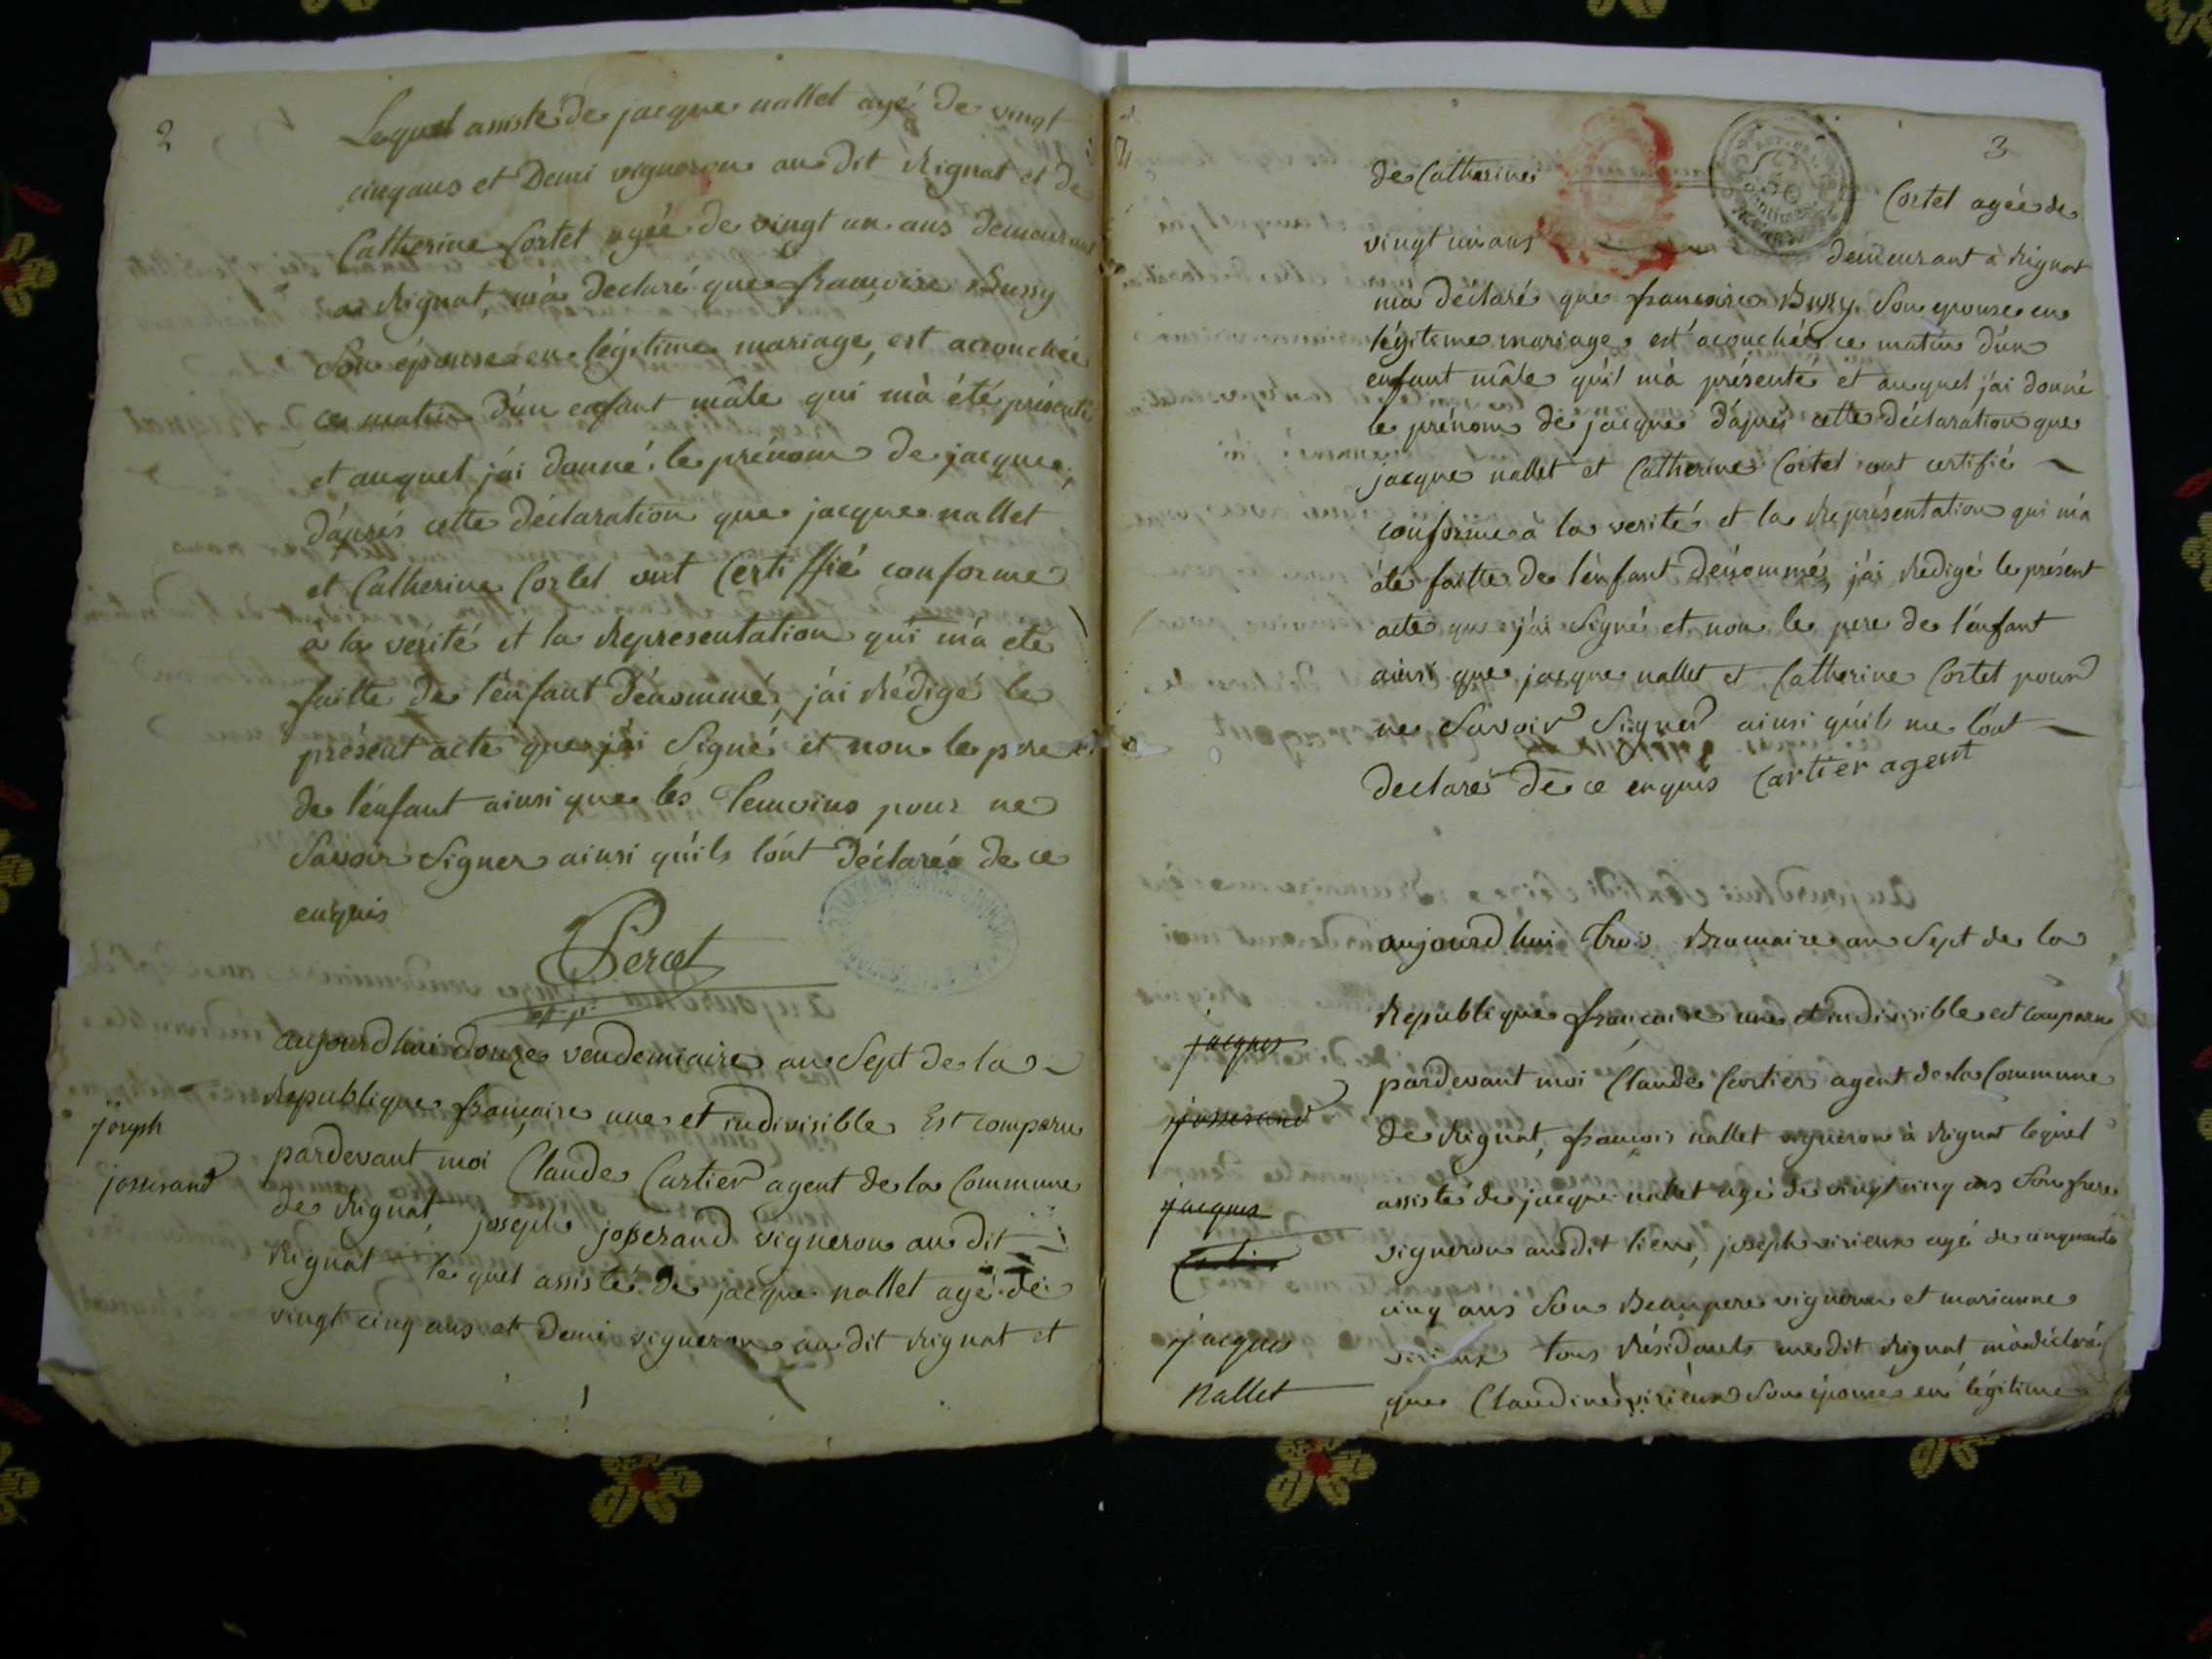 2
Lequel assisté de jacque nallet agé de vingt
cinq ans et Demi vigneron au dit Rignat et de
Catherine Cortet agée de vingt un ans demeurant
a Rignat, m'a declaré que francoise Bussy
Son épouse en légitime mariage, est accouchée
ce matin d'un enfant mâle qui m'à été présenté
et auquel j'ai donné le prénom de jacque,
d'aprés cette déclaration que jacque nallet
et Catherine Cortet ont Certiffié conforme
a la verité et la Representation qui m'a eté
faitte de l'enfant dénommé, j'ai Rédigé le
présent acte que j'ai Signé et non le pere
de l'enfant ainsi que les Temoins pour ne
Savoir Signer ainsi qu'ils l'ont Déclarée de ce
enquis
Percet
joseph
josserand
aujourdhui douze vendemiaire an Sept de la
Republique françaire une et indivisible Est comparu
pardevant moi Claude Cartier agent de la Commune
de Rignat, joseph josserand vigneron au dit
Rignat le quel assisté de jacque nallet agé de
vingt cinq ans et Demi vigneron au dit Rignat et
3
de Catherine Cortet agée de
vingt un ans demeurant à Rignat
m'a déclaré que francoise Bussy Son epouse en
légitime mariage est acouchée ce matin d'un
enfant mâle qu'il m'à présenté et auquel j'ai donné
le prénom de jacque d'apres cette déclaration que
jacque nallet et Catherine Cortet ont certifié
conforme à la verité et la Représentation qui m'a
été faitte de l'enfant dénommé, j'ai Redigé le présent
acte que j'ai Signé et non le pere de l'enfant
ainsi que jacque nallet et Catherine Cortet pour
ne Savoir Signer ainsi qu'il me l'ont
declaré de ce enquis Cartier agent
jacques
josserand
jacques
jacques
Nallet
aujourdhui trois Brumaire an Sept de la
Republique francaire une et indivisible est comparu
pardevant moi Claude Cartier agent de la Commune
de Rignat, francois nallet vigneron à Rignat lequel
assisté de jacque nallet agé de vingt cinq ans Son frere
vigneron au dit lieu, joseph virieux agé de cinquante
cinq ans Son Beaupere vigneron et marianne
virieux tous Résidants au dit Rignat m'a déclaré
que Claudine virieux Son épouse en légitime